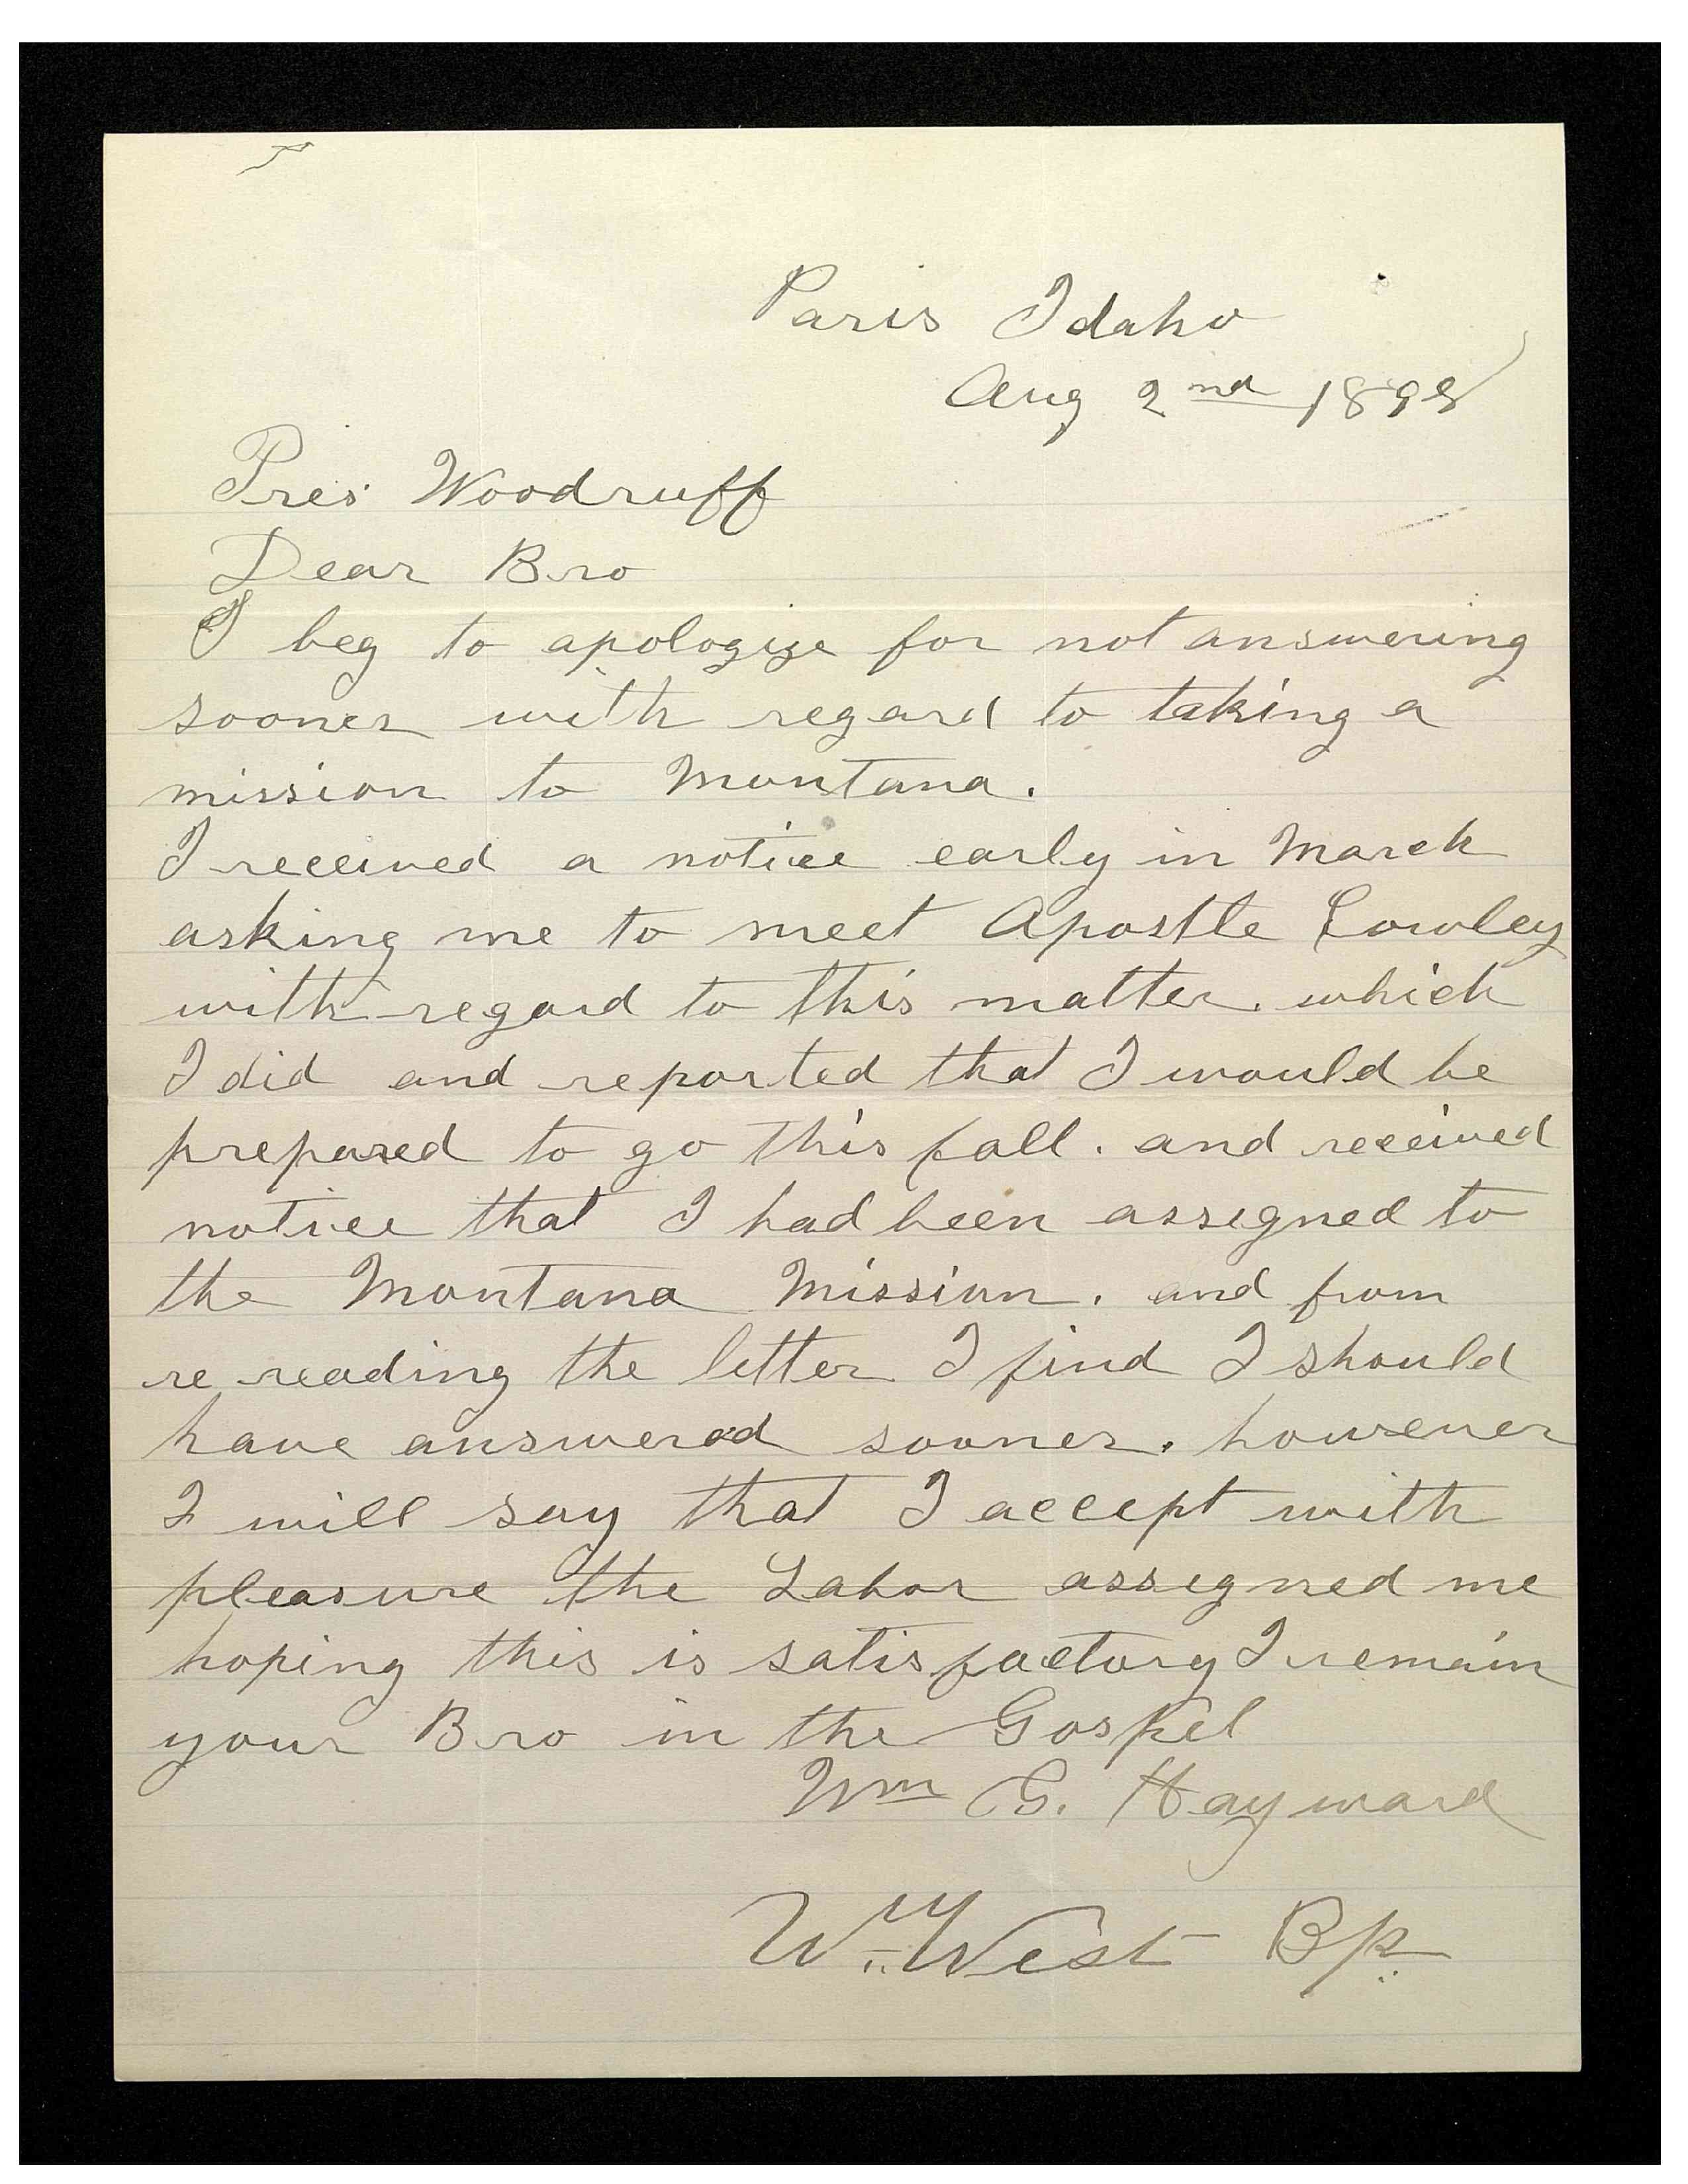 Paris Idaho
Aug 2nd 1898
Pres Woodruff
Dear Bro
I beg to apologize for not answering
sooner with regard to taking a
mission to Montana.
I received a notice early in March
asking me to meet Apostle Cowley
with regard to this matter. which
I did and reported that I would be
prepared to go this fall. and received
notice that I had been assigned to
the Montana Mission. and from
re reading the letter I find I should
have answered sooner. however
I will say that I accept with
pleasure the Labor assigned me
hoping this is satisfactory I remain
your Bro in the Gospel
Wm G. Hayward
Wm West Bp.